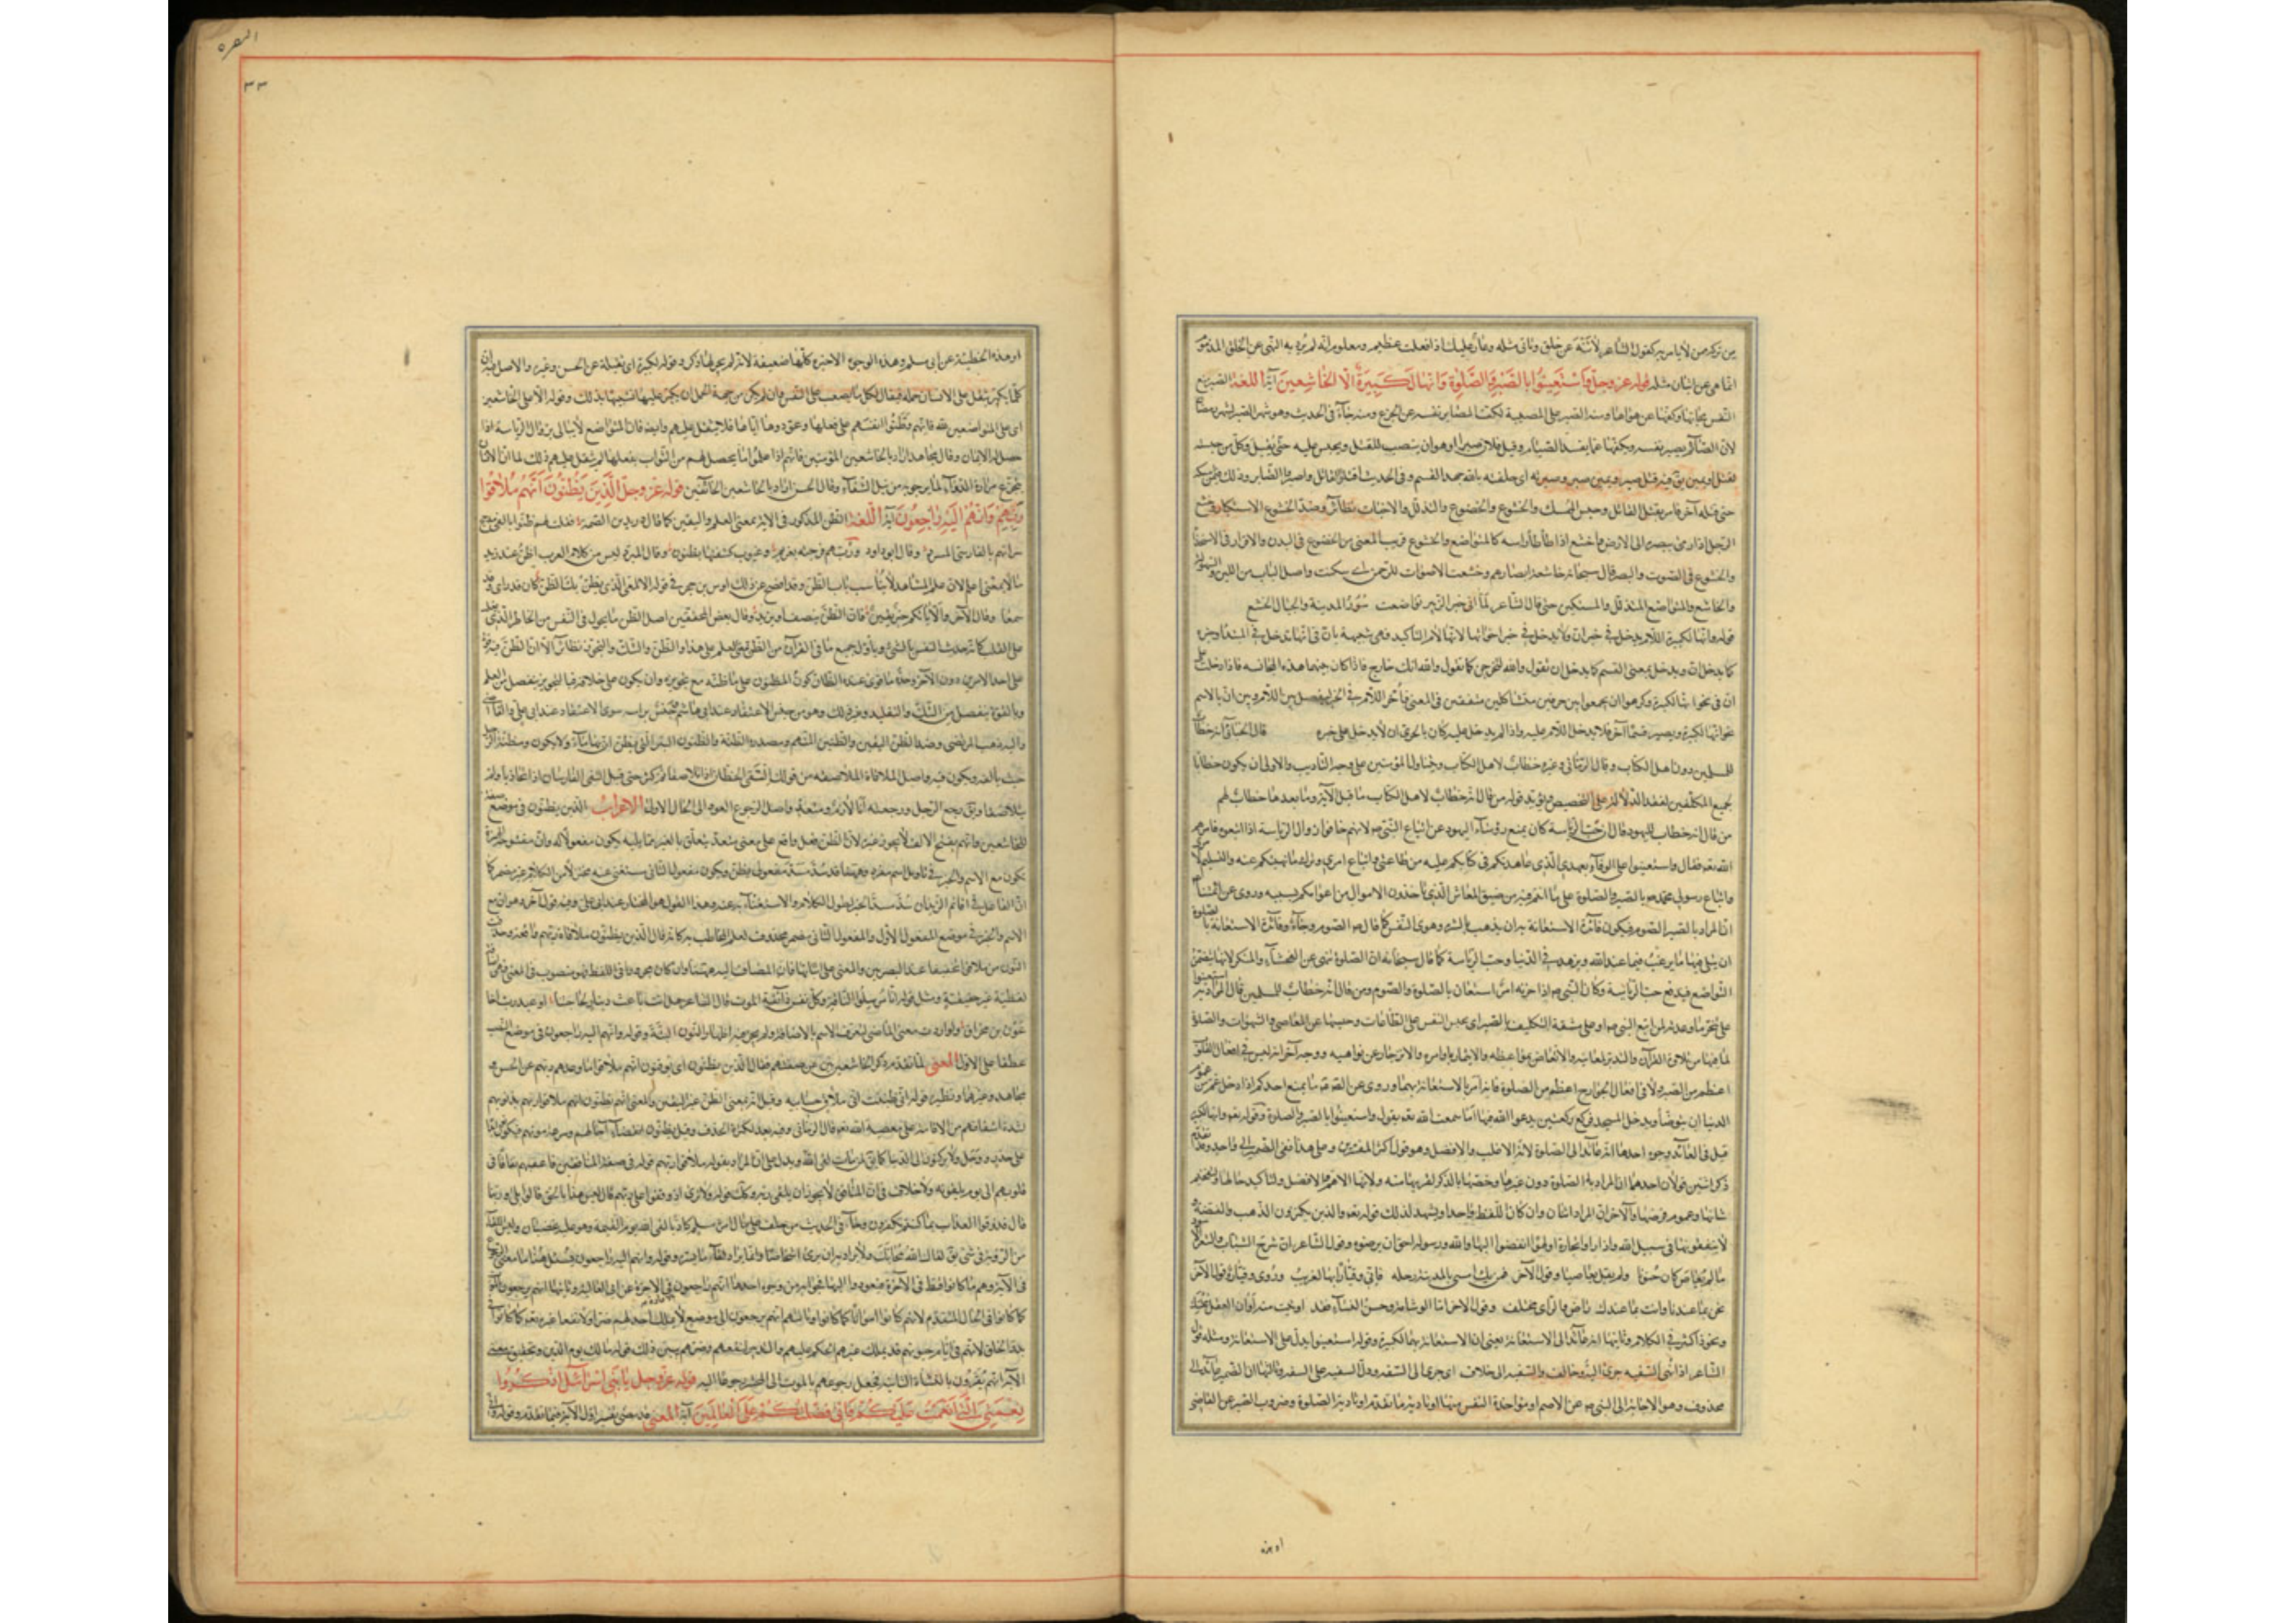 من تركه من لا يأمر به كقول الشاعر لا تنه عن خلق وتأتي مثله وعار عليك اذا فعلت عظيم ومعلوم انه لم يرد به النهي عن الخلق المذموم
انما هي عن اتيان مثله قوله عز وجل وَاسْتَعِينُوا بِالصَّبْرِ وَالصَّلٰوةِ وَاِنَّهَا لَكَبِيرَةٌ اِلَّا عَلَى الْخَاشِعِينَ آية اللغة الصبر منع
النفس محابها وكفها عن هواها ومنه الصبر على المصيبة لكف الصابر نفسه عن الجزع ومنه جاء في الحديث وهو شهر الصبر لشهر رمضان
لان الصائم يصبر نفسه ويكفها عما يفسد الصيام وقتل فلان صبرا وهو ان ينصب للقتل ويحبس عليه حتى يقتل وكل من حبسته
لقتل او يمين فيه قتل صبر ويمين صبر وصبرته اي حلفته بالله جهد القسم وفي الحديث اقتلوا القاتل واصبروا الصابر وذلك فيمن امسك
حتى قتله آخر فامر بقتل القاتل وحبس الممسك والخشوع والخضوع والتذلل والاخبات نظائر وضد الخشوع الاستكبار وخشع
الرجل اذا رمى ببصره الى الارض واختشع اذا طأطأ رأسه كالمتواضع والخشوع قريب المعنى من الخضوع الا ان الخضوع في البدن والاقرار بالاستخذاء
والخشوع في الصوت والبصر قال سبحانه خاشعة ابصارهم وخشعت الاصوات للرحمن اي سكنت واصل الباب من اللين والسهولة
والخاشع والمتواضع المتذلل والمستكين حتى قال الشاعر لما اتى خبر الزبير تواضعت سور المدينة والجبال الخشع
قوله وانها لكبيرة اللام يدخل في خبر ان ولا يدخل في خبر اخواتها لانها لام التأكيد فهي شبيهة بان في انها تدخل في المبتدأ وخبره
كما يدخل ان ويدخل بمعنى القسم كما يدخل ان تقول والله لتخرجن كما تقول والله انك خارج فاذا كان بينهما هذه المجانسة فاذا دخلت على
ان في نحو انها لكبيرة وكرهوا ان يجمعوا بين حرفين متشاكلين متفقين في المعنى فاخر اللام في الخبر ليفصل بين اللام وبين ان بالاسم
نحو انها لكبيرة قال الجبائي انه خطاب
للمسلمين دون اهل الكتاب وقال الرماني وغيره خطاب لاهل الكتاب ويتناول المؤمنين على وجه التأديب والاولى ان يكون خطابا
لجميع المكلفين لفقد الدلالة على التخصيص ويؤيد قول من قال انه خطاب لاهل الكتاب ما قبل الآية وما بعدها خطاب لهم
من قال انه خطاب لليهود قال ان حب الرياسة كان يمنع رؤساء اليهود عن اتباع النبي ص لانهم خافوا زوال الرياسة اذا اتبعوه فامرهم
الله تعه فقال واستعينوا على الوفاء بعهدي الذي عاهدتكم في كتابكم عليه من طاعتي واتباع امري وترك ما نهيتكم عنه والتسليم لامري
واتباع رسولي محمد ص بالصبر والصلوة على ما انتم فيه من ضيق المعاش الذي تأخذون الاموال من اعوامكم بسببه وروي عن ائمتنا
ان المراد بالصبر الصوم فيكون فائدة الاستعانة به ان يذهب بالشره وهوى النفس كما قال ص الصوم وجاء وفائدة الاستعانة بالصلوة
ان يتلى فيها ما يرغب فيما عند الله ويزهد في الدنيا وحب الرياسة كما قال سبحانه ان الصلوة تنهى عن الفحشاء والمنكر ولانها يتضمن
التواضع فيدفع حب الرياسة وكان النبي ص اذا حزبه امر استعان بالصلوة والصوم ومن قال انه خطاب للمسلمين قال المراد به استعينوا
على تنجز ما وعدته لمن اتبع النبي ص او على مشقة التكليف بالصبر اي بحبس النفس على الطاعات وحبسها عن المعاصي والشهوات والصلوة
لما فيها من تلاوة القرآن والتدبر لمعانيه والاتعاظ بمواعظه والايتمار باوامره والانزجار عن نواهيه ووجه آخر انه ليس في افعال القلوب
اعظم من الصبر ولا في افعال الجوارح اعظم من الصلوة فامر بالاستعانة بهما وروي عن الصادق ع ما يمنع احدكم اذا دخل عليه غم من غموم
الدنيا ان يتوضأ ويدخل المسجد فيركع ركعتين يدعو الله فيها اما سمعت الله تعه يقول واستعينوا بالصبر والصلوة وقوله تعه وانها لكبيرة
قيل في العائد وجوه احدها انه عائد الى الصلوة لانه الاغلب والافضل وهو قول اكثر المفسرين وعلى هذا ففي الضمير الى واحد وقد تقدم
ذكر اثنين قولان احدهما ان المراد به الصلوة دون غيرها وخصها بالذكر لقربها منه ولانها الاهم والافضل ولتأكيد حالها وتفخيم
شأنها وعموم فرضها والآخر ان المراد اثنان وان كان اللفظ واحدا ويشهد لذلك قوله تعه والذين يكنزون الذهب والفضة و
لا ينفقونها في سبيل الله واذا رأوا تجارة او لهوا انفضوا اليها والله ورسوله احق ان يرضوه وقول الشاعر ان شرخ الشباب والشعر الاسود
ما لم يعاص كان جنونا ولم يقل يعاصيا وقول الآخر فمن يك امسى بالمدينة رحله فاني وقيار بها لغريب وروي وقيارا وقول الآخر
نحن بما عندنا وانت بما عندك راض والرأي مختلف وقول الآخر اما الوسامة وحسن النساء فقد اوتيت منه
ونحوه كثير في الكلام وثانيها انه عائد الى الاستعانة يعني ان الاستعانة بهما لكبيرة وقوله استعينوا يدل على الاستعانة ومثله قول
الشاعر اذا نهي السفيه جرى اليه وخالف والسفيه الى خلاف اي جرى الى السفه ودل السفيه على السفه وثالثها ان الضمير عائد الى
محذوف وهو الاجابة الى النبي ص عن الاصم او مؤاخذة النفس بهما او تأدية ما تقدم او تأدية الصلوة وضروب الصبر عن المعاصي
او هذه
البقرة
٣٣
او هذه الخطيئة عن ابي مسلم وهذه الوجوه الاخيرة كلها ضعيفة لانه لم يجر لها ذكر وقوله لكبيرة اي لثقيلة عن الحسن وغيره والاصل فيه ان
كلما يكبر يثقل على الانسان حمله فيقال لكل ما يصعب على النفس وان لم يكن من جهة الحمل ان يكبر عليها تشبيها بذلك وقوله الا على الخاشعين
اي على المتواضعين لله فانهم قد وطنوا انفسهم على فعلها وعودوها اياها فلا يثقل عليهم وايضا فان المتواضع لا يبالي بزوال الرياسة اذا
حصل له الايمان وقال مجاهد اراد بالخاشعين المؤمنين فانهم اذا علموا ما يحصل لهم من الثواب بفعلها لم يثقل عليهم ذلك كما ان الانسان
يتجرع مرارة الدواء لما يرجو به من نيل الشفاء وقال الحسن اراد بالخاشعين الخائفين قوله عز وجل اَلَّذِينَ يَظُنُّونَ اَنَّهُمْ مُلَاقُوا
رَبِّهِمْ وَاَنَّهُمْ اِلَيْهِ رَاجِعُونَ آية اللغة الظن المذكور في الآية بمعنى العلم واليقين كما قال دريد بن الصمة فقلت لهم ظنوا بالفي مدجج
سراتهم بالفارسي المسرد وقال ابو داود رب هم فرجته بعزيم وغيوب كشفتها بظنون وقال المبرد ليس من كلام العرب اظن عند زيد
مالا بمعنى اعلم لان العلم المشاهد لا يناسب باب الظن وقد افصح عن ذلك اوس بن حجر في قوله الالمعي الذي يظن بك الظن كان قد رأى وقد
سمعا وقال الآخر فان الظن ينقص او يزيد وقال بعض المحققين اصل الظن ما يجول في النفس من الخاطر الذي يغلب
على القلب كأنه حديث النفس بالشيء وتأول جميع ما في القرآن من الظن بمعنى العلم على هذا والظن والشك والتجويز نظائر الا ان الظن فيه قوة
على احد الامرين دون الآخر وحده ما قوي عنده الظان كون المظنون على ما ظنه مع تجويزه ان يكون على خلافه فبالتجويز ينفصل من العلم
وبالقوة ينفصل من الشك والتقليد وغير ذلك وهو من جنس الاعتقاد عند ابي هاشم وجنس برأسه سوى الاعتقاد عند ابي علي والقاضي
واليه ذهب المرتضى وضد الظن اليقين والظنين المتهم ومصدره الظنة والظنون البئر التي يظن ان بها ماء ولا يكون ومظنة الرجل
حيث يألفه ويكون فيه واصل الملاقاة الملاصقة من قولك التقى الخطان اذا تلاصقا ثم كثر حتى قيل التقى الفارسان اذا تحاذيا ولم
يتلاصقا ويق رجع الرجل ورجعته انا لازم ومتعد واصل الرجوع العود الى الحال الاول الاعراب الذين يظنون في موضع صفة
للخاشعين وانهم بفتح الالف لا يجوز غيره لان الظن فعل واقع على معنى متعد يتعلق بالغير فما يليه يكون مفعولا له وان مفتوحة الهمزة
يكون مع الاسم والخبر في تأويل اسم مفرد وههنا قد سد مسد مفعولي يظن ويكون المفعول الثاني مستغنى عنه مختزلا من الكلام غير مضمر كما
ان الفاعل في اقائم الزيدان سد مسد الخبر لطول الكلام والاستغناء به عنه وهذا القول هو المختار عند ابي علي وفيه قول آخر وهو ان مع
الاسم والخبر في موضع المفعول الاول والمفعول الثاني مضمر محذوف لعلم المخاطب به كأنه قال الذين يظنون ملاقاة ربهم واقعة وحذفت
النون من ملاقوا تخفيفا عند البصريين والمعنى على اثباتها فان المضاف اليه ههنا وان كان مجرورا في اللفظ فهو منصوب في المعنى فهي اضافة
لفظية غير حقيقية ومثل قوله انا مرسلوا الناقة وكل نفس ذائقة الموت قال الشاعر هل انت باعث دينار لحاجتنا او عبد رب اخا
عون بن مخراق ولو اردت معنى الماضي لتعرف الاسم بالاضافة ولم يجز فيه اظهار النون البتة وقوله وانهم اليه راجعون في موضع النصب
عطفا على الاول المعنى لما تقدم ذكر الخاشعين بين صفتهم فقال الذين يظنون اي يوقنون انهم ملاقوا ما وعدهم ربهم عن الحسن و
مجاهد وغيرهما ونظيره قوله اني ظننت اني ملاق حسابيه وقيل انه بمعنى الظن غير اليقين والمعنى انهم يظنون انهم ملاقوا ربهم بذنوبهم
لشدة اشفاقهم من الاقامة على معصية الله تعه قال الرماني وفيه بعد لكثرة الحذف وقيل يظنون انقضاء آجالهم وسرعة موتهم فيكونون ابدا
على حذر ووجل ولا يركنون الى الدنيا كما يق لمن مات لقي الله ويدل على ان المراد بقوله ملاقوا ربهم قوله في صفة المنافقين فاعقبهم نفاقا في
قلوبهم الى يوم يلقونه ولا خلاف في ان المنافق لا يجوز ان يلقى ربه وكذلك قوله ولو ترى اذ وقفوا على ربهم قال اليس هذا بالحق قالوا بلى وربنا
قال فذوقوا العذاب بما كنتم تكفرون وجاء في الحديث من حلف على مال امرء مسلم كاذبا لقي الله يوم القيمة وهو عليه غضبان وليس اللقاء
من الرؤية في شيء يق لقاك الله محابك ولا يراد به ان يرى اشخاصا وانما يراد لقاء ما يسره وقوله وانهم اليه راجعون يسئل هنا ما معنى الرجوع
في الآية وهم ما كانوا قط في الآخرة فيعودوا اليها فجوابه من وجوه احدها انهم راجعون بالاعادة في الآخرة عن ابي العالية وثانيها انهم يرجعون بالموت
كما كانوا في الحال المتقدم لانهم كانوا امواتا وثالثها انهم يرجعون الى موضع لا يملك احد لهم ضرا ولا نفعا غيره تعه كما كانوا في
بدء الخلق لانهم في ايام حيوتهم قد يملك غيرهم الحكم عليهم والتدبير لنفعهم وضرهم يبين ذلك قوله مالك يوم الدين وتحقيق معنى
الآية انهم يقرون بالنشأة الثانية فجعل رجوعهم بالموت الى المحشر رجوعا اليه قوله عز وجل يَا بَنِي اِسْرَائِيلَ اذْكُرُوا
نِعْمَتِيَ الَّتِي اَنْعَمْتُ عَلَيْكُمْ وَاَنِّي فَضَّلْتُكُمْ عَلَى الْعَالَمِينَ آية المعنى قد مضى تفسير اول الآية فيما تقدم وقوله واني